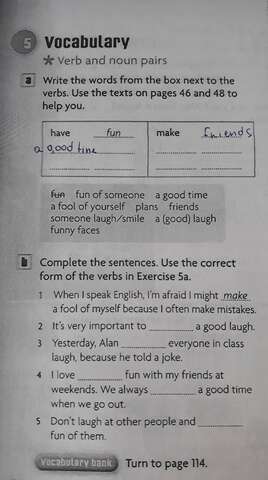 5 Vocabulary
★ Verb and noun pairs
a Write the words from the box next to the
verbs. Use the texts on pages 46 and 48 to
help you.
have fun make friends
a good time
fun fun of someone a good time
a fool of yourself plans friends
someone laugh/smile a (good) laugh
funny faces
b Complete the sentences. Use the correct
form of the verbs in Exercise 5a.
1 When I speak English, I'm afraid I might make
a fool of myself because I often make mistakes.
2 It's very important to ________ a good laugh.
3 Yesterday, Alan ________ everyone in class
laugh, because he told a joke.
4 I love ________ fun with my friends at
weekends. We always ________ a good time
when we go out.
5 Don't laugh at other people and ________
fun of them.
Vocabulary bank Turn to page 114.